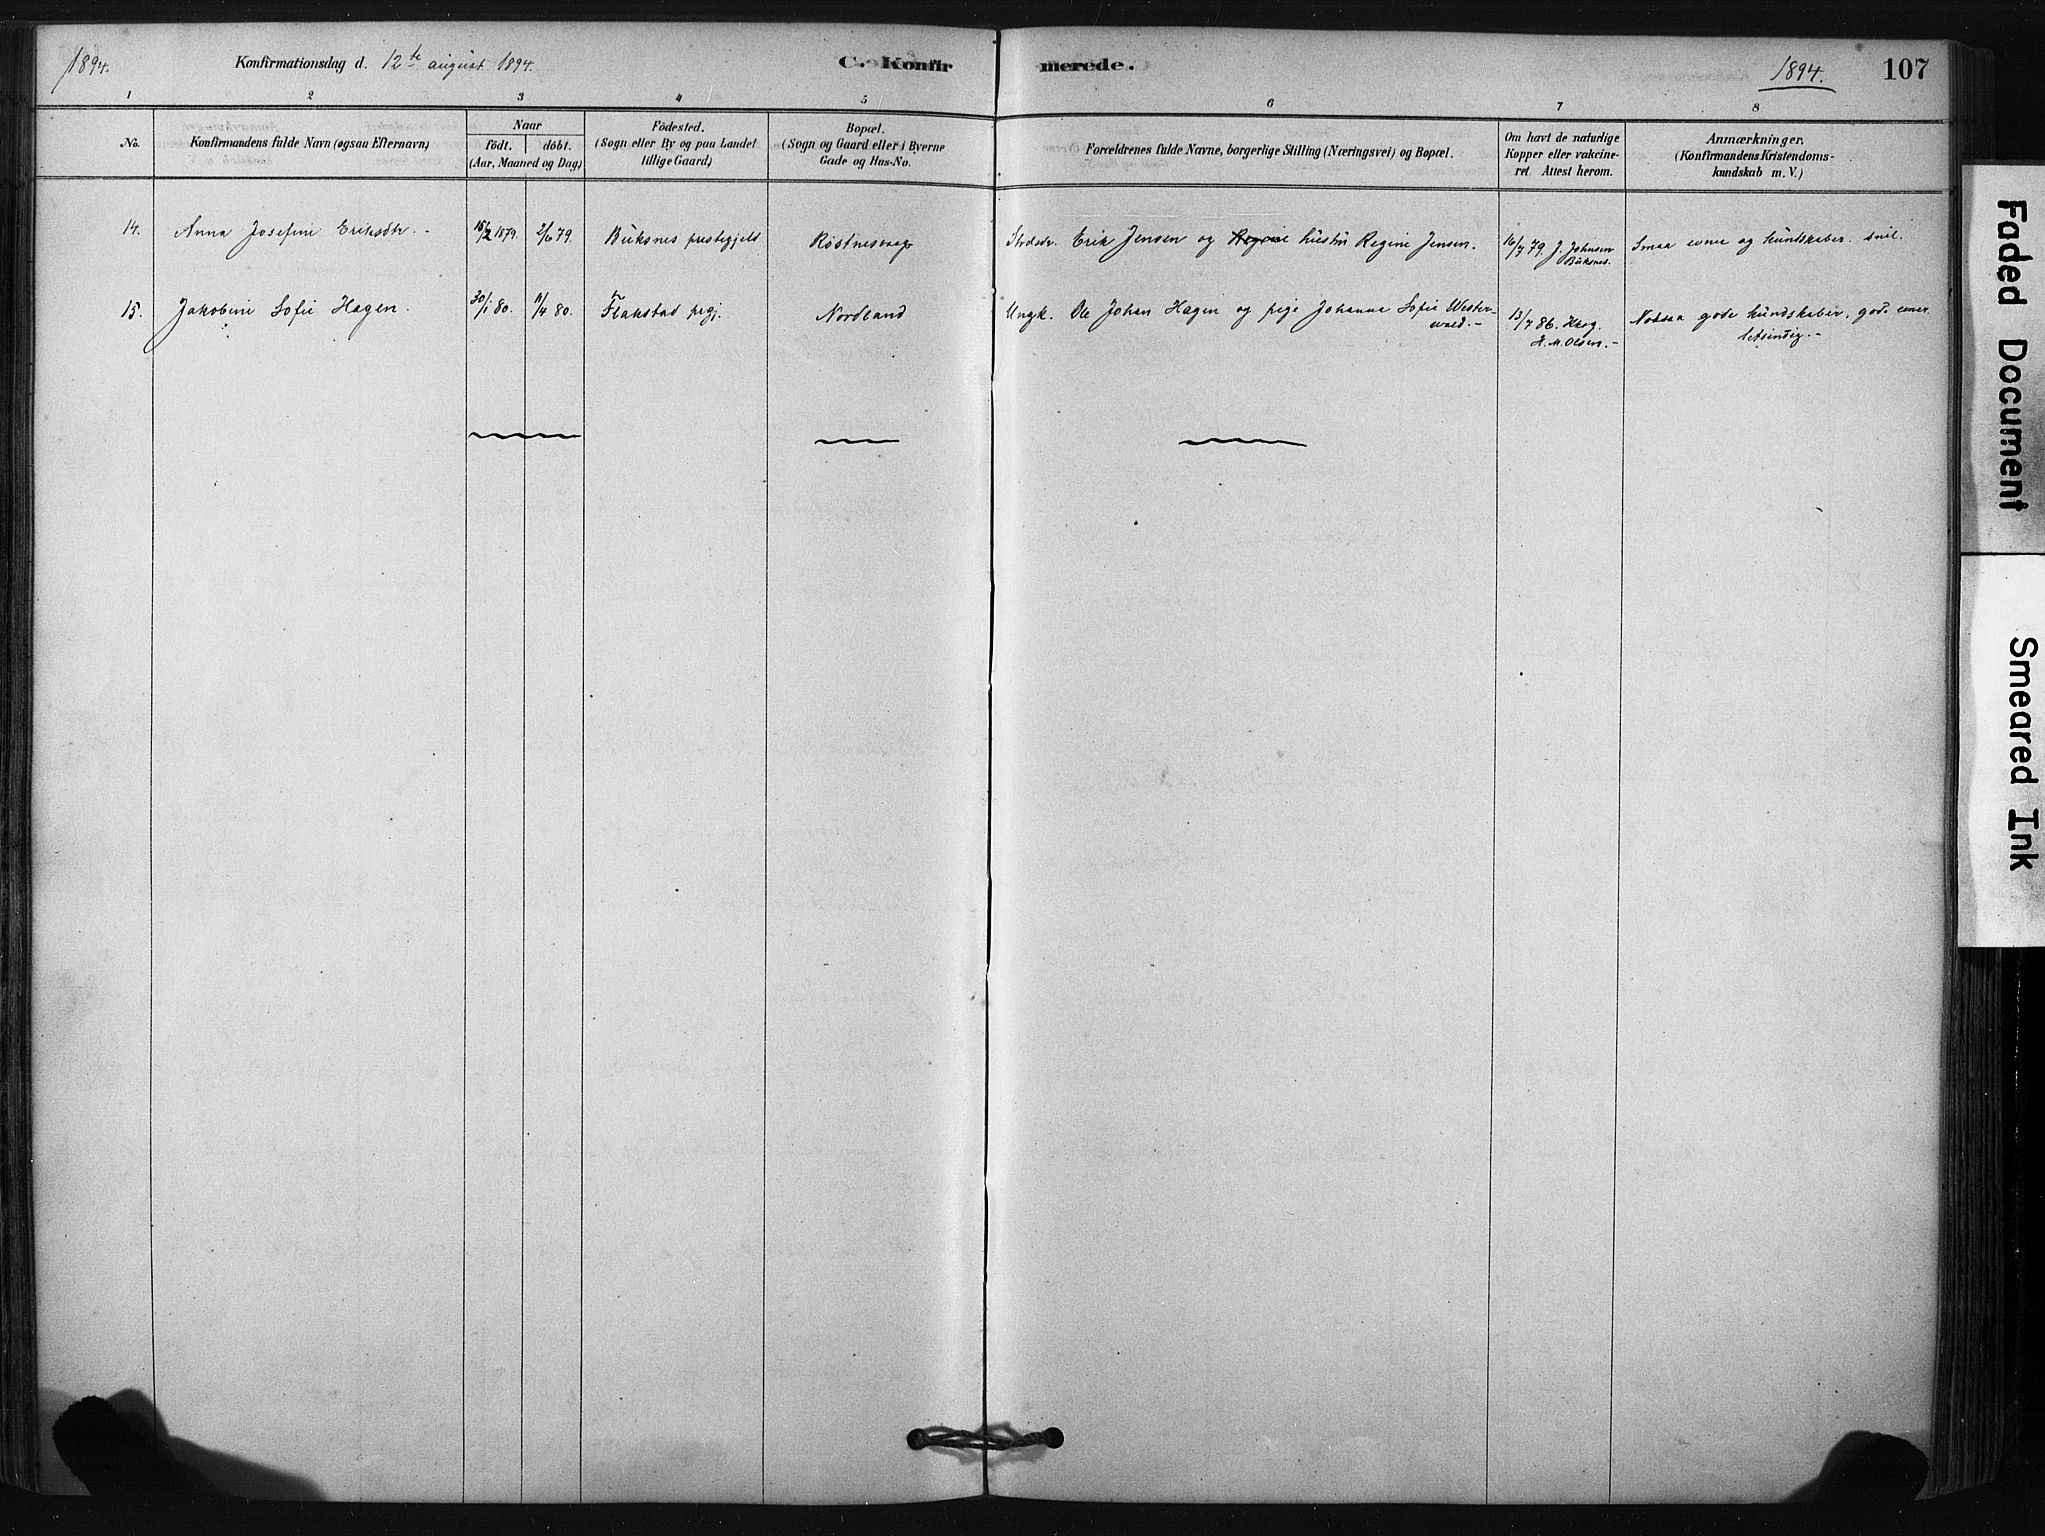 1894.
Konfirmationsdag d. 12te august 1894.
C. Konfirmerede.
1894.
107
1 2 3 4 5 6 7 8
No.
Konfirmandens fulde Navn (ogsaa Efternavn)
Naar
födt. döbt.
(Aar, Maaned og Dag)
Födested.
(Sogn eller By og paa Landet
tillige Gaard)
Bopæl.
(Sogn og Gaard eller i Byerne
Gade og Hus-No.
Forældrenes fulde Navne, borgerlige Stilling (Næringsvei) og Bopæl.
Om havt de naturlige
Kopper eller vakcine-
ret Attest herom.
Anmærkninger.
(Konfirmandens Kristendoms-
kundskab m. V.)
14. Anna Josefine Eriksdtr. 15/2 1879. 2/6 79. Buksnes prestegjeld Erik Jensen og Regine hustru Regine Jensen. 16/7 79. J. Johnsen
Buksnes.
Smaa evner og kundskaber. snil.
15. Jakobine Sofie Hagen. 30/1 80. 11/4 80. Flakstad prgj. Nordland Ungk. Ole Johan Hagen og pige Johanna Sofie Wester-
wald.-
13/7 86. Krog.
H. M. Olsen.-
Nokksaa gode kundskaber, gode evner
letsindig.-
Faded Document
Smeared Ink